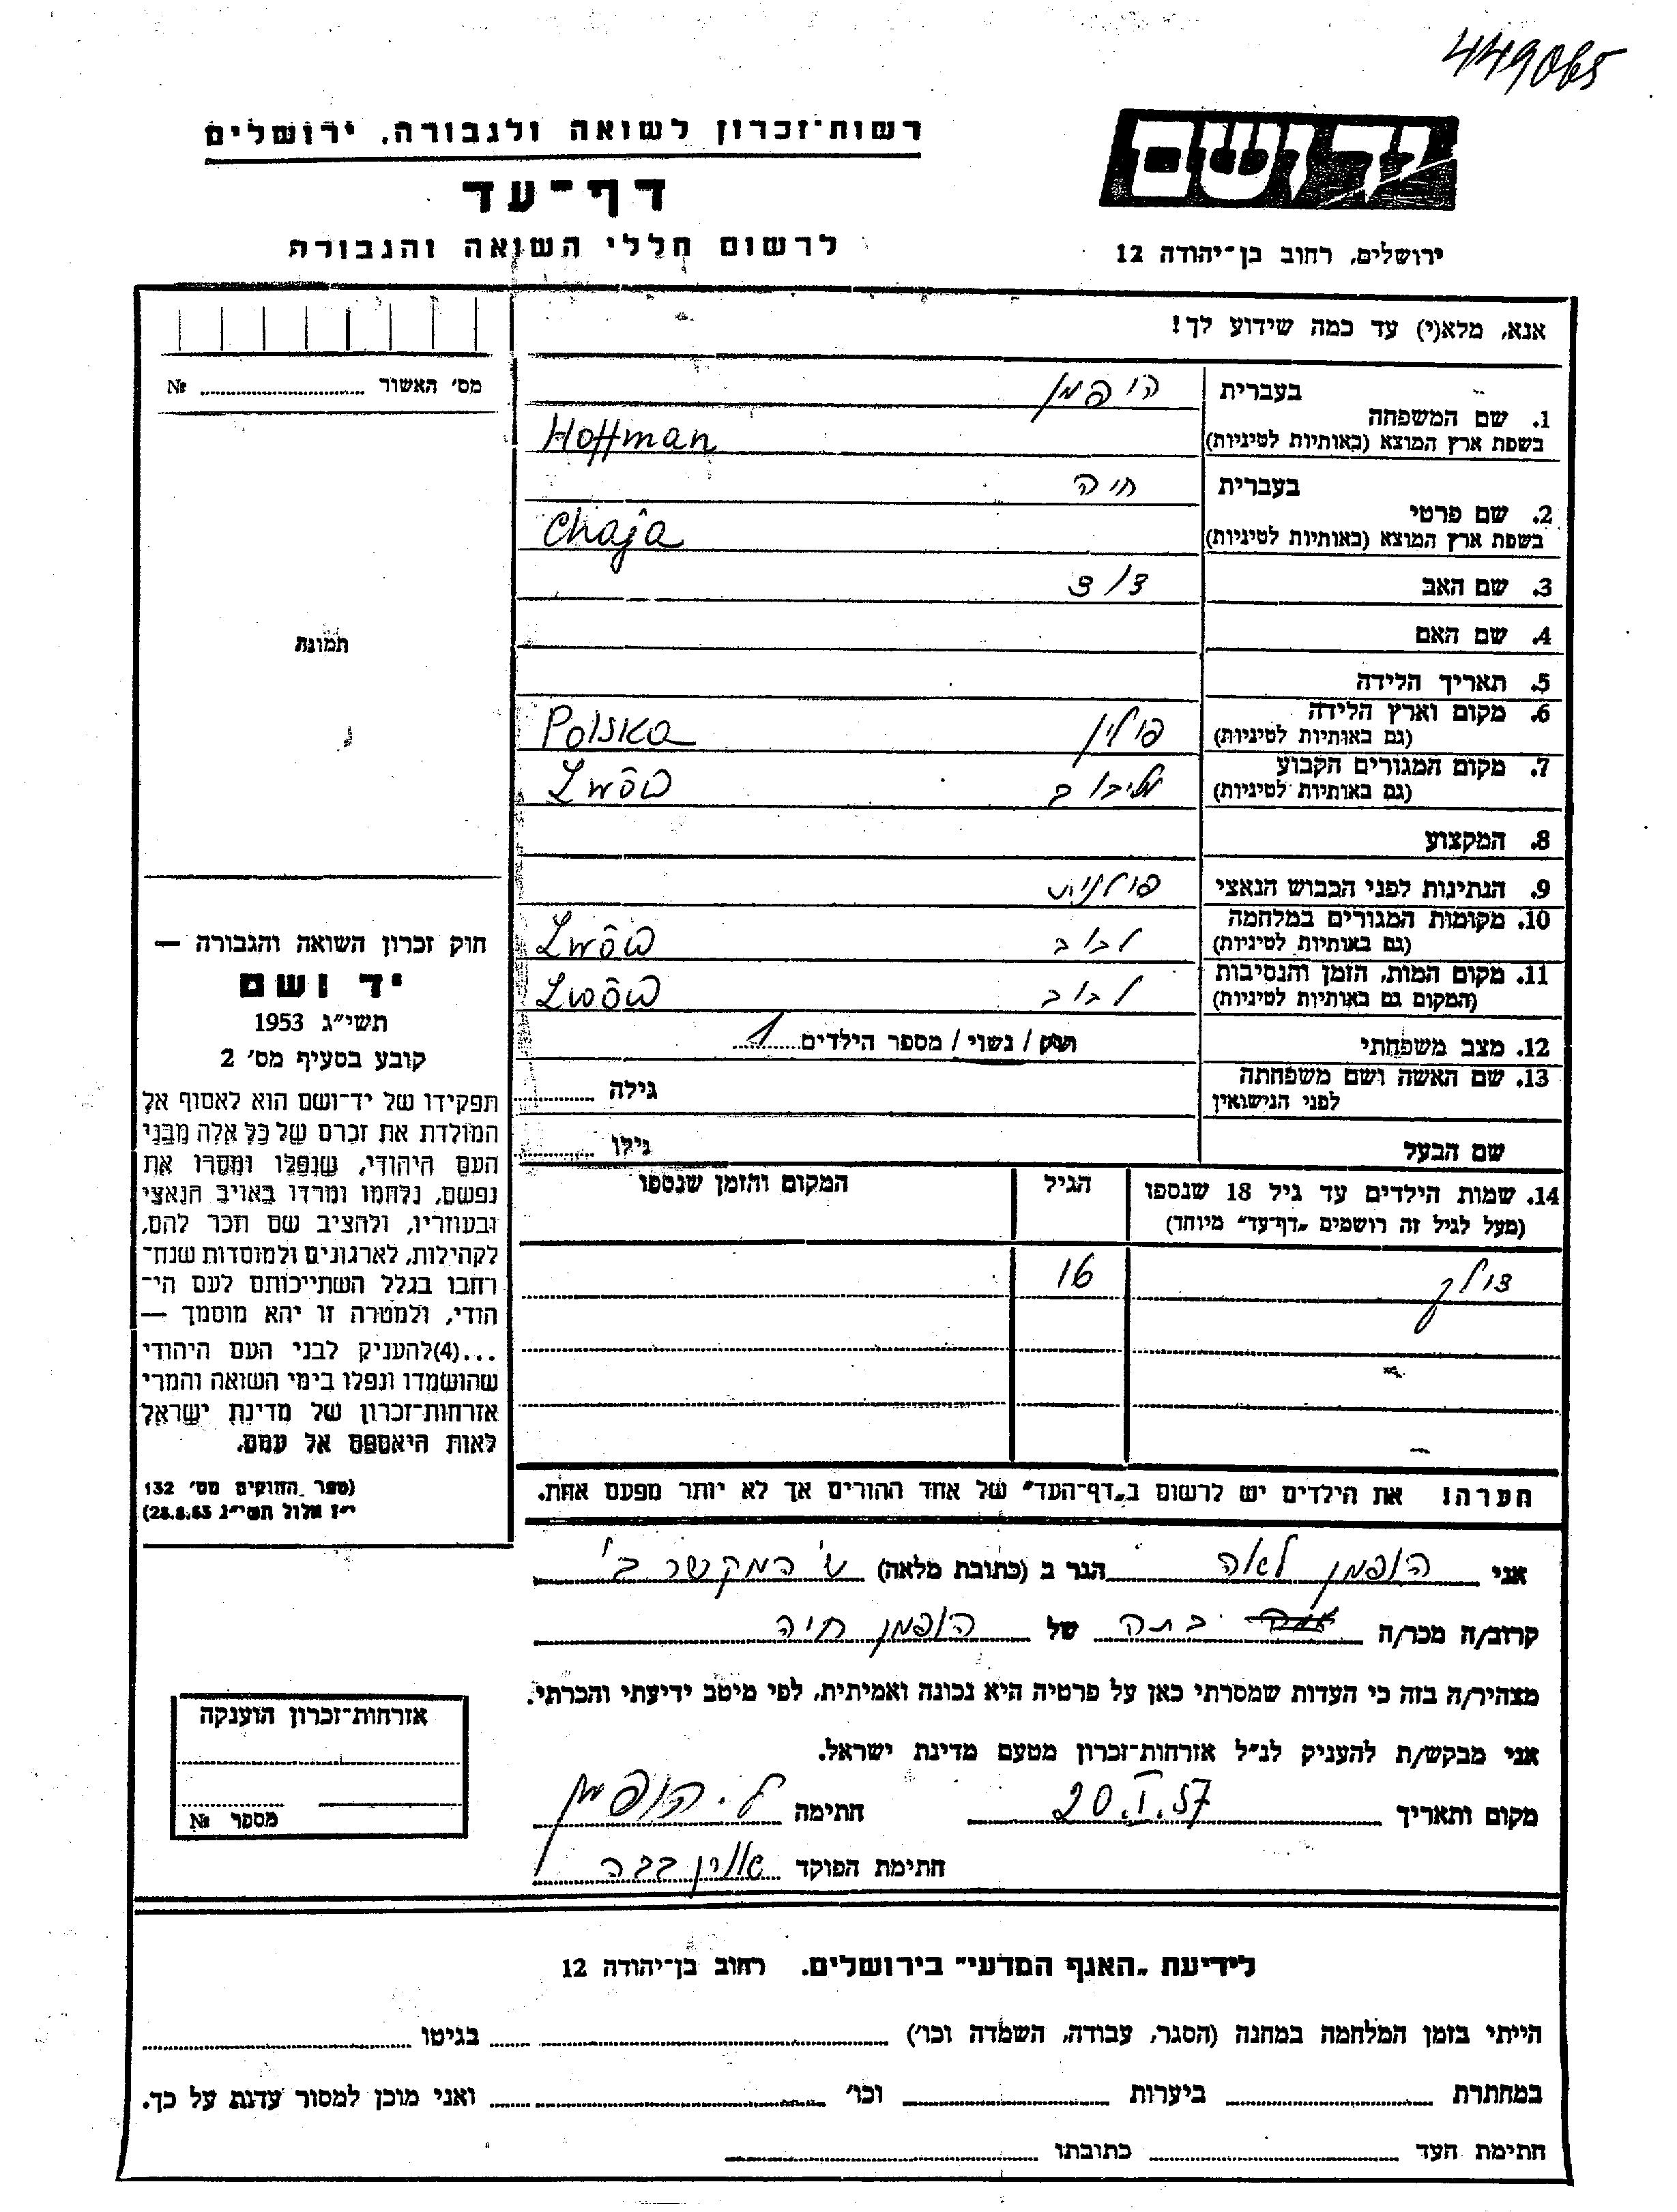 449065
רשות־זכרון לשואה ולגבורה, ירושלים
יד ושם
דף־עד
לרשום חללי השואה והגבורה
ירושלים, רחוב בן־יהודה 12
אנא, מלא(י) עד כמה שידוע לך!
מס' האשור № 
1. שם המשפחה
בעברית הופמן
בשפת ארץ המוצא (באותיות לטיניות) Hoffman
2. שם פרטי
בעברית חיה
בשפת ארץ המוצא (באותיות לטיניות) Chaja
3. שם האב
4. שם האם
5. תאריך הלידה
6. מקום וארץ הלידה
(גם באותיות לטיניות) פולין Polska
7. מקום המגורים הקבוע
(גם באותיות לטיניות) לבוב Lwów
8. המקצוע
9. הנתינות לפני הכבוש הנאצי פולנית
10. מקומות המגורים במלחמה
(גם באותיות לטיניות) לבוב Lwów
11. מקום המות, הזמן והנסיבות
(המקום גם באותיות לטיניות) לבוב Lwów
12. מצב משפחתי רווק / נשוי / מספר הילדים 1
13. שם האשה ושם משפחתה
לפני הנישואין גילה
שם הבעל גילו
14. שמות הילדים עד גיל 18 שנספו הגיל המקום והזמן שנספו
(מעל לגיל זה רושמים „דף־עד" מיוחד)
16
הערה! את הילדים יש לרשום ב„דף־העד" של אחד ההורים אך לא יותר מפעם אחת.
תמונה
חוק זכרון השואה והגבורה —
יד ושם
תשי"ג 1953
קובע בסעיף מס' 2
תפקידו של יד־ושם הוא לאסוף אל
המולדת את זכרם של כל אלה מבני
העם היהודי, שנפלו ומסרו את
נפשם, נלחמו ומרדו באויב הנאצי
ובעוזריו, ולהציב שם וזכר להם,
לקהילות, לארגונים ולמוסדות שנח־
רבו בגלל השתייכותם לעם הי־
הודי, ולמטרה זו יהא מוסמך —
...(4)להעניק לבני העם היהודי
שהושמדו ונפלו בימי השואה והמרי
אזרחות־זכרון של מדינת ישראל
לאות היאספם אל עמם.
(ספר החוקים מס' 132
י"ז אלול תשי"ג 28.8.53)
אני הופמן לאה הגר ב (כתובת מלאה) ש' המקשר ב'
קרוב/ה מכר/ה בתה של הופמן חיה
מצהיר/ה בזה כי העדות שמסרתי כאן על פרטיה היא נכונה ואמיתית, לפי מיטב ידיעתי והכרתי.
אני מבקש/ת להעניק לנ"ל אזרחות־זכרון מטעם מדינת ישראל.
מקום ותאריך 20.I.57 חתימה ל. הופמן
חתימת הפוקד
אזרחות־זכרון הוענקה
מספר №
לידיעת „האגף המדעי" בירושלים, רחוב בן־יהודה 12
הייתי בזמן המלחמה במחנה (הסגר, עבודה, השמדה וכו') בגיטו
במחתרת ביערות וכו' ואני מוכן למסור עדות על כך.
חתימת העד כתובתו